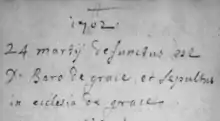 1702
24 martij defunctus est
Ds Baro de grace et sepultus
in eclesia de grace